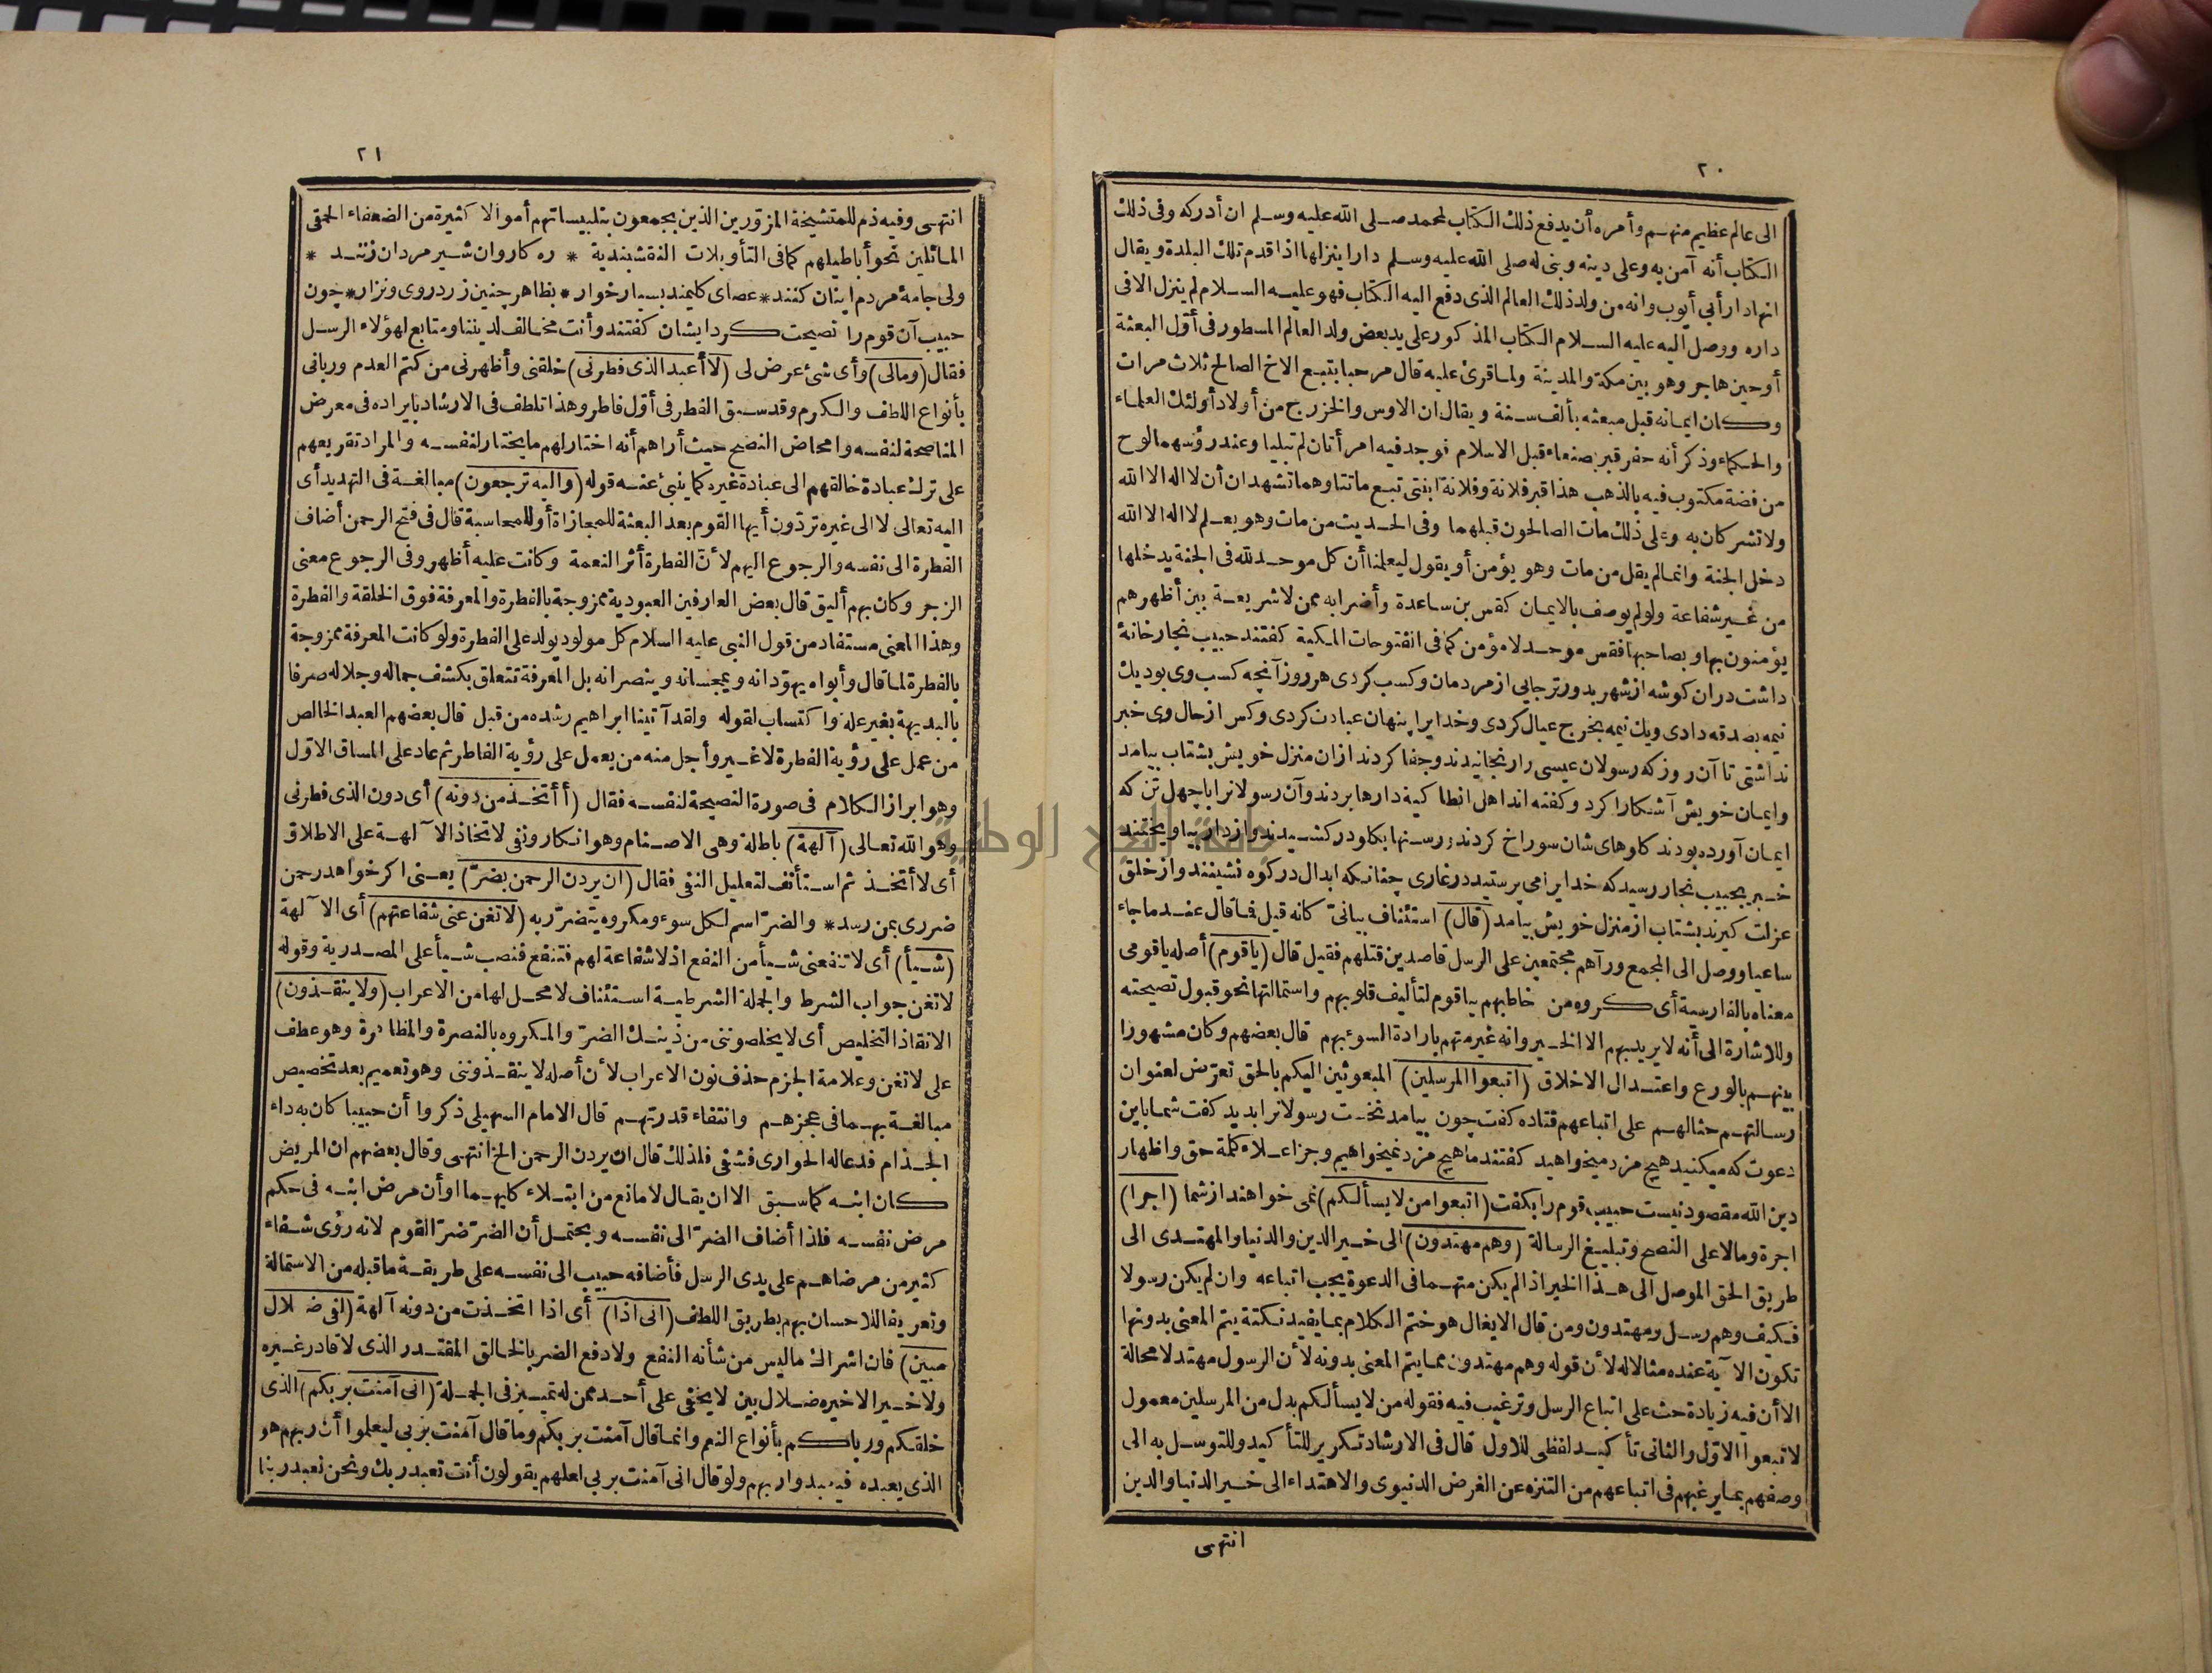 ٢٠
الى عالم عظيم منهم وأمره أن يدفع ذلك الكتاب لمحمد صلى الله عليه وسلم ان أدركه وفى ذلك
الكتاب أنه آمن به وعلى دينه وبنى له صلى الله عليه وسلم دارا ينزلها اذا قدم تلك البلدة ويقال
انها دار أبي أيوب وانه من ولد ذلك العالم الذى دفع اليه الكتاب فهو عليه السلام لم ينزل الا فى
داره ووصل اليه عليه السلام الكتاب المذكور على يد بعض ولد العالم المسطور فى أوّل البعثة
أو حين هاجر وهو بين مكة والمدينة ولما قرئ عليه قال مرحبا بتبع الاخ الصالح ثلاث مرات
وكان ايمانه قبل مبعثه بألف سنة ويقال ان الاوس والخزرج من أولاد أولئك العلماء
والحكماء وذكر أنه حفر قبر بصنعاء قبل الاسلام فوجد فيه امرأتان لم تبليا وعند رؤسهما لوح
من فضة مكتوب فيه بالذهب هذا قبر فلانة وفلانة ابنتى تبع ماتتا وهما تشهدان أن لا اله الا الله
ولا تشركان به وعلى ذلك مات الصالحون قبلهما وفى الحديث من مات وهو يعلم لا اله الا الله
دخل الجنة وانما لم يقل من مات وهو يؤمن أو يقول ليعلمنا أن كل موحد لله فى الجنة يدخلها
من غير شفاعة ولو لم يوصف بالايمان كقس بن ساعدة وأضرابه ممن لا شريعة بين أظهرهم
يؤمنون بها وبصاحبها فقس موحد لا مؤمن كما فى الفتوحات المكية كفتند حبيب نجار خانهٔ
داشت دران كوشه از شهر بدورتر جايى از مردمان وكسب كردى هر روز آنچه كسب وى بوديك
نيمه بصدقه دادى ويك نيمه بخرج عيال كردى وخدايرا پنهان عبادت كردى وكس از حال وى خبر
نداشتى تا آن روز كه رسولان عيسى را رنجانيدند وجفا كردند ازان منزل خويش بشتاب بيامد
وايمان خويش آشكارا كرد وكفته اند اهل انطاكيه دارها بردند وآن رسولانرا با چهل تن كه
ايمان آورده بودند كلوهاى شان سوراخ كردند ورسنها بكلو در كشيدند وازدار بياويختند
خبر بحبيب نجار رسيد كه خدايرا مى پرستيد در غارى چنانكه ابدال در كوه نشينند واز خلق
عزلت كيرند بشتاب از منزل خويش بيامد (قال) استئناف بيانىّ كانه قيل فما قال عند ما جاء
ساعيا ووصل الى المجمع ورآهم مجتمعين على الرسل قاصدين قتلهم فقيل قال (يا قوم) أصله يا قومى
معناه بالفارسية أى كروه من خاطبهم بيا قوم لتأليف قلوبهم واستمالتها نحو قبول نصيحته
وللاشارة الى أنه لا يريد بهم الا الخير وانه غير متهم بارادة السوء بهم قال بعضهم وكان مشهورا
بينهم بالورع واعتدال الاخلاق (اتبعوا المرسلين) المبعوثين اليكم بالحق تعرّض لعنوان
رسالتهم حثا لهم على اتباعهم قتاده كفت چون بيامد نخست رسولانرا بديد كفت شما باين
دعوت كه ميكنيد هيچ مزد ميخواهيد كفتند ما هيچ مزد نميخواهيم وجز اعلاء كلمهٔ حق واظهار
دين الله مقصود نيست حبيب قوم را بكفت (اتبعوا من لا يسألكم) نمى خواهند از شما (اجرا)
اجرة ومالا على النصح وتبليغ الرسالة (وهم مهتدون) الى خير الدين والدنيا والمهتدى الى
طريق الحق الموصل الى هذا الخير اذا لم يكن متهما فى الدعوة يجب اتباعه وان لم يكن رسولا
فكيف وهم رسل ومهتدون ومن قال الايغال هو ختم الكلام بما يفيد نكتة يتم المعنى بدونها
تكون الآية عنده مثالا له لأن قوله وهم مهتدون مما يتم المعنى بدونه لأن الرسول مهتد لا محالة
الا أن فيه زيادة حث على اتباع الرسل وترغيب فيه فقوله من لا يسألكم بدل من المرسلين معمول
لاتبعوا الاوّل والثانى تأكيد لفظى للاول قال فى الارشاد تكرير للتأكيد وللتوسل به الى
وصفهم بما يرغبهم فى اتباعهم من التنزه عن الغرض الدنيوى والاهتداء الى خير الدنيا والدين
انتهى
٢١
انتهى وفيه ذم للمتشيخة المزوّرين الذين يجمعون بتلبيساتهم أموالا كثيرة من الضعفاء الحمقى
المائلين نحو أباطيلهم كما فى التأويلات النقشبندية * ره كاروان شير مردان زنند *
ولى جامهٔ مردم اينان كنند * عصاى كليمند بسيار خوار * بظاهر چنين زرد روى ونزار * چون
حبيب آن قوم را نصيحت كرد ايشان كفتند وأنت مخالف لديننا ومتابع لهؤلاء الرسل
فقال (ومالى) وأى شئ عرض لى (لا أعبد الذى فطرنى) خلقنى وأظهرنى من كتم العدم وربانى
بأنواع اللطف والكرم وقد سبق الفطر فى أوّل فاطر وهذا تلطف فى الارشاد بايراده فى معرض
المناصحة لنفسه وامحاض النصح حيث أراهم أنه اختار لهم ما يختار لنفسه والمراد تقريعهم
على ترك عبادة خالقهم الى عبادة غيره كما ينبئ عنه قوله (واليه ترجعون) مبالغة فى التهديد أى
اليه تعالى لا الى غيره تردّون أيها القوم بعد البعثة للمجازاة أو للمحاسبة قال فى فتح الرحمن أضاف
الفطرة الى نفسه والرجوع اليهم لأنّ الفطرة أثر النعمة وكانت عليه أظهر وفى الرجوع معنى
الزجر وكان بهم أليق قال بعض العارفين العبودية ممزوجة بالفطرة والمعرفة فوق الخلقة والفطرة
وهذا المعنى مستفاد من قول النبى عليه السلام كل مولود يولد على الفطرة ولو كانت المعرفة ممزوجة
بالفطرة لما قال وأبواه يهوّدانه ويمجسانه وينصرانه بل المعرفة تتعلق بكشف جماله وجلاله صرفا
بالبديهة بغير علة واكتساب لقوله ولقد آتينا ابراهيم رشده من قبل قال بعضهم العبد الخالص
من عمل على رؤية الفطرة لا غير وأجل منه من يعمل على رؤية الفاطر ثم عاد على المساق الاوّل
وهو ابراز الكلام فى صورة النصيحة لنفسه فقال (أأتخذ من دونه) أى دون الذى فطرنى
وهو الله تعالى (آلهة) باطلة وهى الاصنام وهو انكار ونفى لاتخاذ الآلهة على الاطلاق
أى لا أتخذ ثم استأنف لتعليل النفى فقال (ان يردن الرحمن بضرّ) يعنى اكر خواهد رحمن
ضررى بمن رسد * والضرّ اسم لكل سوء ومكروه يتضرّر به (لا تغن عنى شفاعتهم) أى الآلهة
(شيأ) أى لا تنفعنى شيأ من النفع اذ لا شفاعة لهم فتنفع فنصب شيأ على المصدرية وقوله
لا تغن جواب الشرط والجملة الشرطية استئناف لا محل لها من الاعراب (ولا ينقذون)
الانقاذ التخليص أى لا يخلصوننى من ذينك الضرّ والمكروه بالنصرة والمظاهرة وهو عطف
على لا تغن وعلامة الجزم حذف نون الاعراب لأن أصله لا ينقذوننى وهو تعميم بعد تخصيص
مبالغة بهما فى عجزهم وانتفاء قدرتهم قال الامام السهيلى ذكروا أن حبيبا كان به داء
الجذام فدعا له الحوارى فشفى فلذلك قال ان يردن الرحمن الخ انتهى وقال بعضهم ان المريض
كان ابنه كما سبق الا ان يقال لا مانع من ابتلاء كليهما او أن مرض ابنه فى حكم
مرض نفسه فلذا أضاف الضرّ الى نفسه ويحتمل أن الضرّ ضرّ القوم لانه روُى شفاء
كثير من مرضاهم على يدى الرسل فأضافه حبيب الى نفسه على طريقة ما قبله من الاستمالة
وتعريفا للاحسان بهم بطريق اللطف (انى اذا) أى اذا اتخذت من دونه آلهة (لفى ضلال
مبين) فان اشراك ما ليس من شأنه النفع ولا دفع الضر بالخالق المقتدر الذى لا قادر غيره
ولا خير الا خيره ضلال بين لا يخفى على أحد ممن له تمييز فى الجملة (انى آمنت بربكم) الذى
خلقكم ورباكم بأنواع النعم وانما قال آمنت بربكم وما قال آمنت بربى ليعلموا أن ربهم هو
الذى يعبده فيعبدوا ربهم ولو قال انى آمنت بربى لعلهم يقولون أنت تعبد ربك ونحن نعبد ربنا